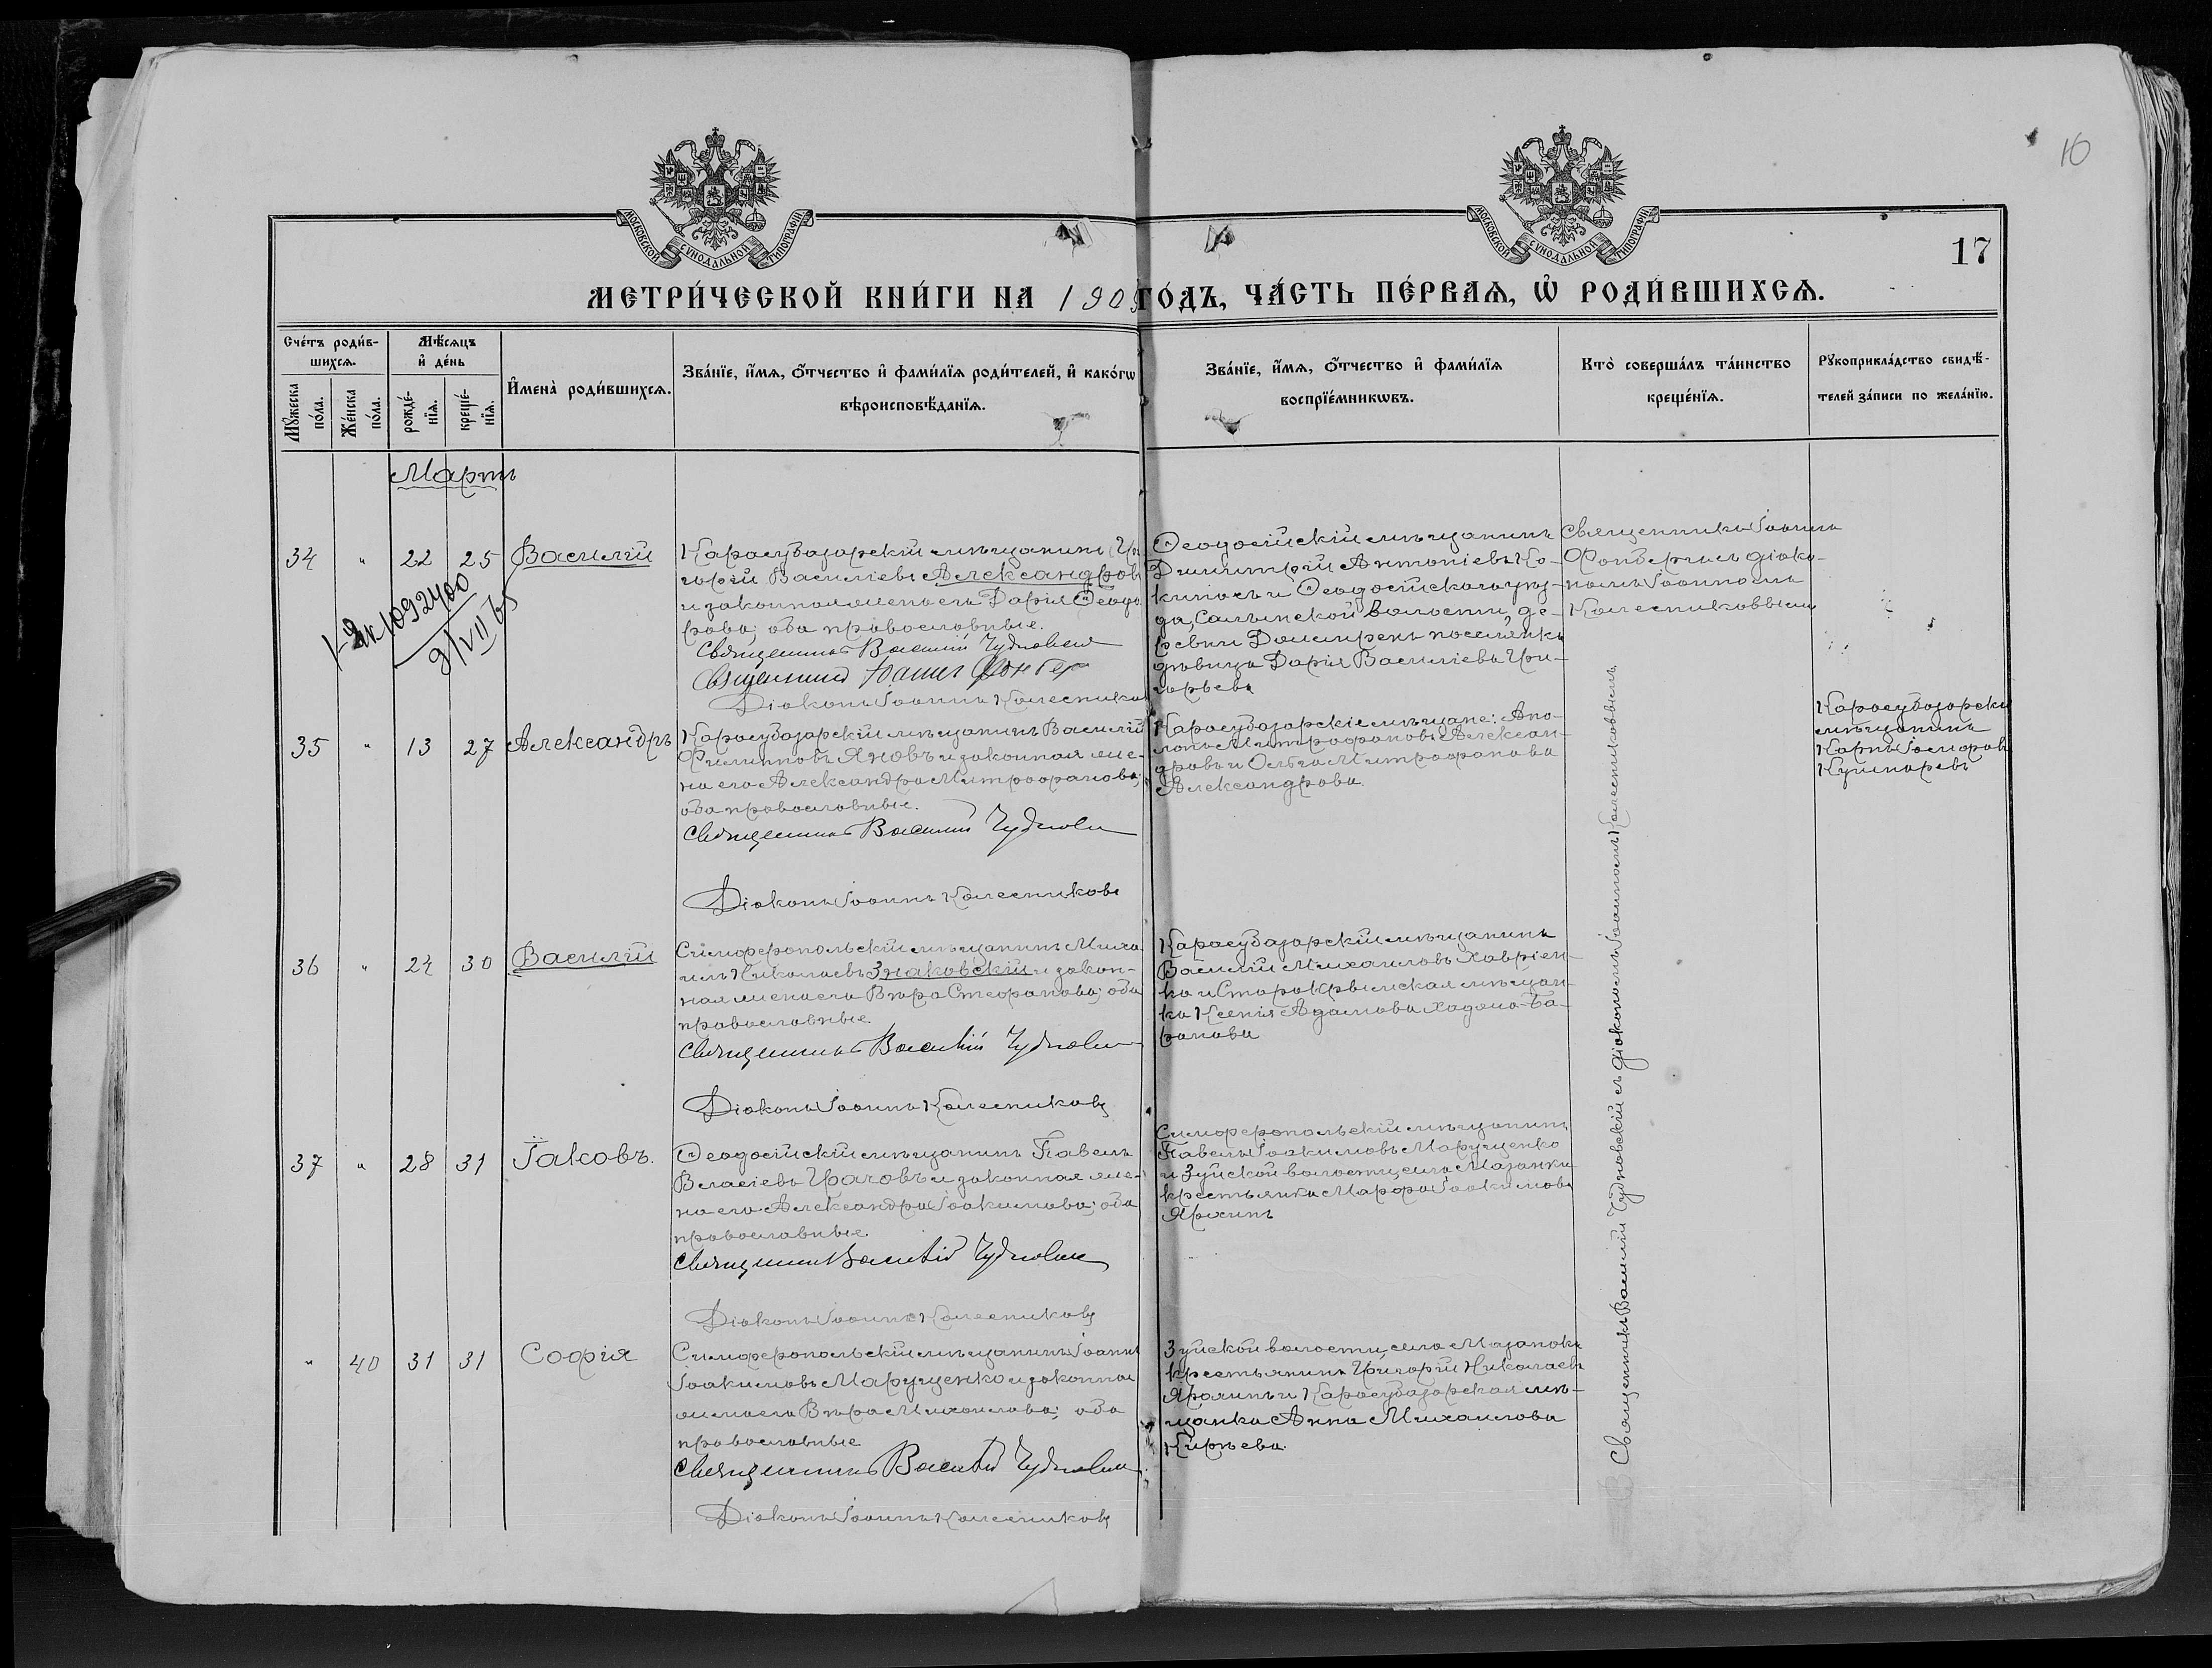 10
МОСКОВСКОЙ СѴНОДАЛЬНОЙ ТИПОГРАФІИ
МОСКОВСКОЙ СѴНОДАЛЬНОЙ ТИПОГРАФІИ
17
МЕТРИ́ЧЕСКОЙ КНИ́ГИ НА 190 ГО́ДЪ, ЧА́СТЬ ПЕ́РВАѦ, Ѡ РОДИ́ВШИХСѦ.
Сче́тъ роди́в-
шихсѧ.
Мꙋ́жеска по́ла.
Же́нска по́ла.
Мѣ́сѧцъ
и҆ де́нь
рожде́-
нїѧ.
креще́-
нїѧ.
И҆мена̀ роди́вшихсѧ.
Зва́нїе, и҆́мѧ, ѻ҆́тчество и҆ фами́лїѧ роди́телей, и҆ како́гѡ
вѣроисповѣ́данїѧ.
Зва́нїе, и҆́мѧ, ѻ҆́тчество и҆ фами́лїѧ
воспрїе́мникѡвъ.
Кто̀ соверша́лъ та́инство
креще́нїѧ.
Рꙋкоприкла́дство свидѣ́-
телей за́писи по жела́нїю.
Мартъ
34 " 22 25 Василій
Карасубазарскій мѣщанинъ
горій Василіевъ Александровъ
и законная жена его Дарія Ѳеодо
рова; оба православные.
Священникъ Василій Чудновскій
Священникъ Іоаннъ
Діаконъ Іоаннъ Колесниковъ
Ѳеодосійскій мѣщанинъ
Димитрій Антоніевъ Ко-
и Ѳеодосійскаго уѣз-
да, Салынской волости, де-
ревни поселянка
дѣвица Дарія Василіева Гри-
горьева
Священникъ Іоаннъ
съ діако-
номъ Іоанномъ
Колесниковымъ
1092400
9/VII 65
35 " 13 27 Александръ
Карасубазарскій мѣщанинъ Василій
Филипповъ Яновъ и законная же-
на его Александра Митрофанова;
оба православные.
Священникъ Василій Чудновскій
Діаконъ Іоаннъ Колесниковъ
Карасубазарскіе мѣщане: Апо-
лонъ Митрофановъ Алексан-
дровъ и Ольга Митрофанова
Александрова.
Карасубазарскій
мѣщанинъ
Карпъ
Кушнаревъ
36 " 24 30 Василій
Симферопольскій мѣщанинъ Миха
илъ Николаевъ Знаковскій и закон-
ная жена его Вѣра Стефанова; оба
православные.
Священникъ Василій Чудновскій
Діаконъ Іоаннъ Колесниковъ
Карасубазарскій мѣщанинъ
Василій Михаиловъ Хавріен-
ко и Старокрымская мѣщан-
ка Ксенія Адамова Ба-
ранова
37 " 28 31 Іаковъ.
Ѳеодосійскій мѣщанинъ Павелъ
Власіевъ Грачовъ и законная же-
на его Александра Іоакимова; оба
православные.
Священникъ Василій Чудновскій
Діаконъ Іоаннъ Колесниковъ
Симферопольскій мѣщанинъ
Павелъ Іоакимовъ Марущенко
и Зуйской волости, села Мазанки
крестьянка Марфа Іоакимова
" 40 31 31 Софія
Симферопольскій мѣщанинъ Іоаннъ
Іоакимовъ Марущенко и законная
жена его Вѣра Михаилова; оба
православные
Священникъ Василій Чудновскій
Діаконъ Іоаннъ Колесниковъ
Зуйской волости, села Мазанокъ
крестьянинъ Григорій Николаевъ
и Карасубазарская мѣ-
щанка Анна Михаилова
Кирѣева.
Священникъ Василій Чудновскій съ діакономъ Іоанномъ Колесниковымъ